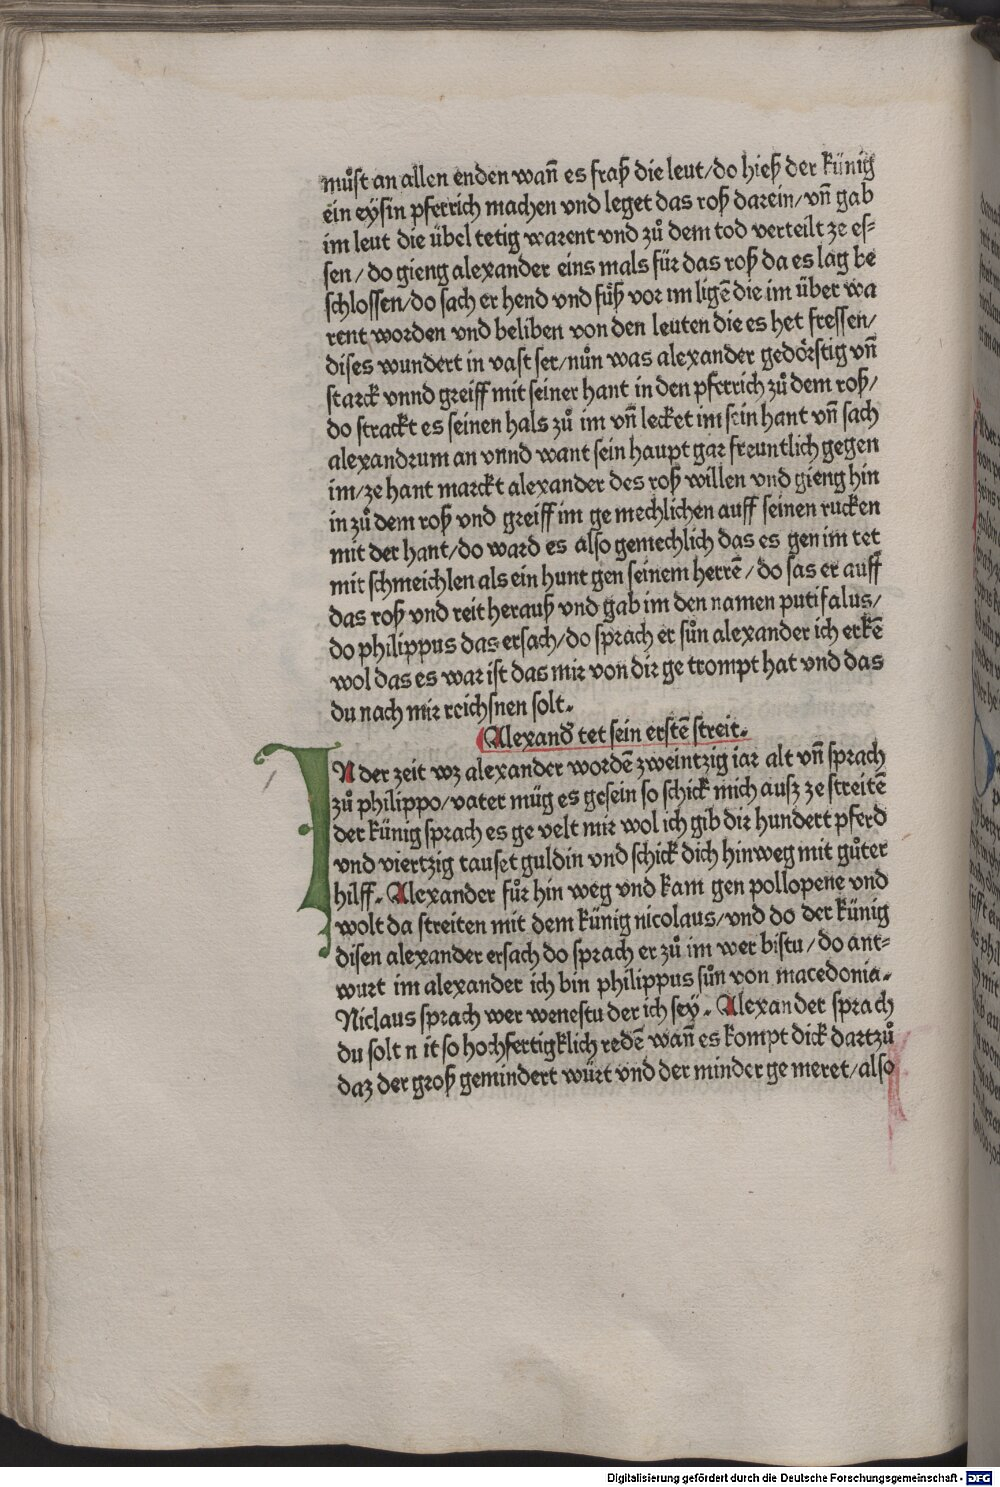 můst an allen enden wañ es fraß die leut/do hieß der künig
ein eysin pferrich machen vnd leget das roß darein/vñ gab
im leut die übel tetig warent vnd zů dem tod verteilt ze es⸗
sen/do gieng alexander eins mals für das roß da es lag be
schlossen/do sach er hend vnd füß vor im ligẽ die im über wa
rent worden vnd beliben von den leuten die es het fressen/
dises wundert in vast ser/nůn was alexander gedörstig vñ
starck vnnd greiff mit seiner hant in den pferrich zů dem roß/
do strackt es seinen hals zů im vñ lecket im sein hant vñ sach
alexandrum an vnnd want sein haupt gar freuntlich gegen
im/ze hant marckt alexander des roß willen vnd gieng hin
in zů dem roß vnd greiff im ge mechlichen auff seinen rucken
mit der hant/do ward es also gemechlich das es gen im tet
mit schmeichlen als ein hunt gen seinem herrẽ/do sas er auff
das roß vnd reit herauß vnd gab im den namen putifalus/
do philippus das ersach/do sprach er sůn alexander ich erkẽ
wol das es war ist das mir von dir ge trompt hat vnd das
du nach mir reichsnen solt.
Alexand̉ tet sein erstẽ streit.
IN der zeit wz alexander wordẽ zweintzig iar alt vñ sprach
zů philippo/vater müg es gesein so schick mich ausz ze streitẽ
der künig sprach es ge velt mir wol ich gib dir hundert pferd
vnd viertzig tauset guldin vnd schick dich hinweg mit gůter
hilff. Alexander fůr hin weg vnd kam gen pollopene vnd
wolt da streiten mit dem künig nicolaus/vnd do der künig
disen alexander ersach do sprach er zů im wer bistu/do ant⸗
wurt im alexander ich bin philippus sůn von macedonia.
Niclaus sprach wer wenestu der ich sey. Alexander sprach
du solt n it so hochfertigklich redẽ wañ es kompt dick dartzů
daz der groß gemindert würt vnd der minder ge meret/also
Digitalisierung gefördert durch die Deutsche Forschungsgemeinschaft - DFG